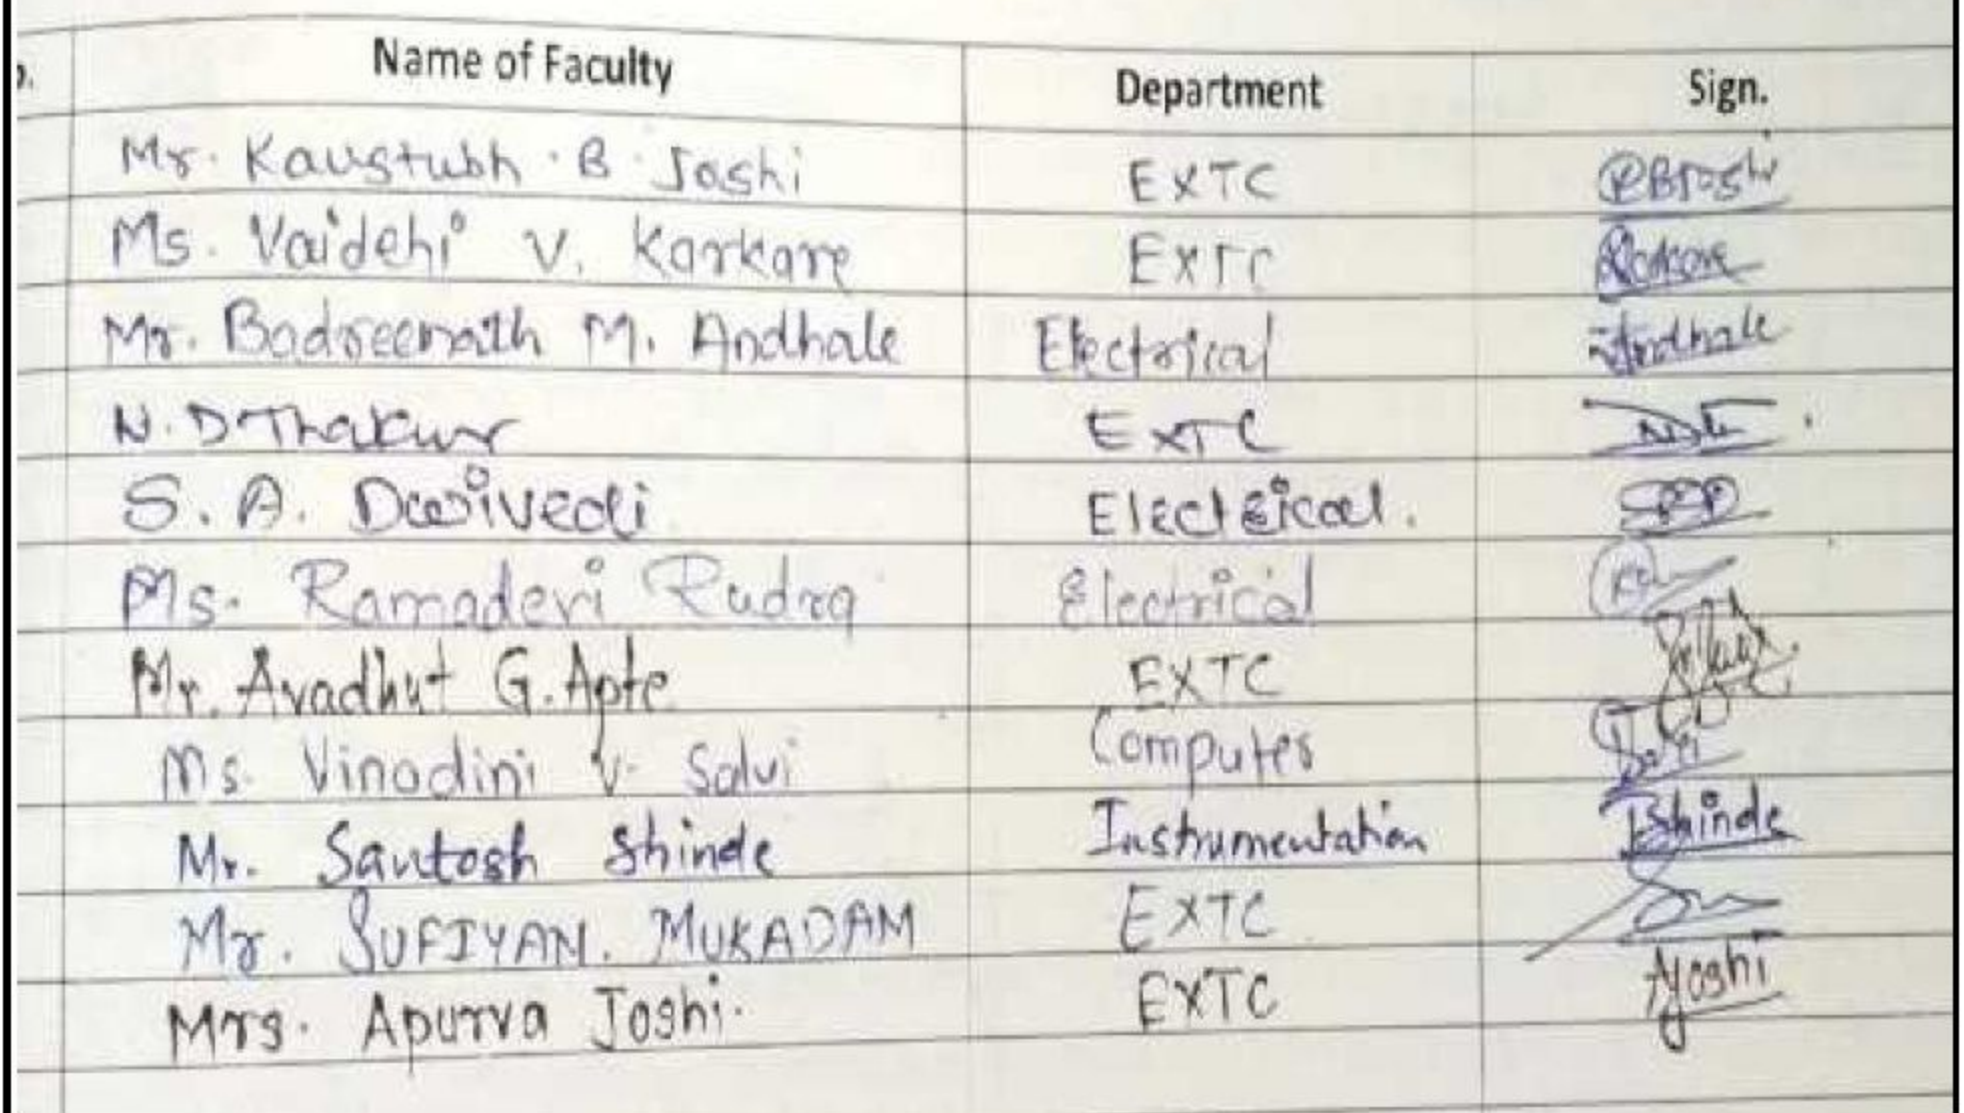 Name of Faculty Department Sign.
Mr. Kaustubh . B . Joshi EXTC KBJoshi
Ms. Vaidehi V. Karkare EXTC Karkare
Mr. Badreenath M. Andhale Electrical Andhale
N. D Thakur EXTC NDT
S. A. Dwivedi Electrical. SAD
Ms. Ramadevi Rudra Electrical
Mr. Avadhut G. Apte EXTC
Ms. Vinodini V. Salvi Computer
Mr. Santosh Shinde Instrumentation Shinde
Mr. SUFIYAN. MUKADAM EXTC
Mrs. Apurva Joshi. EXTC AJoshi